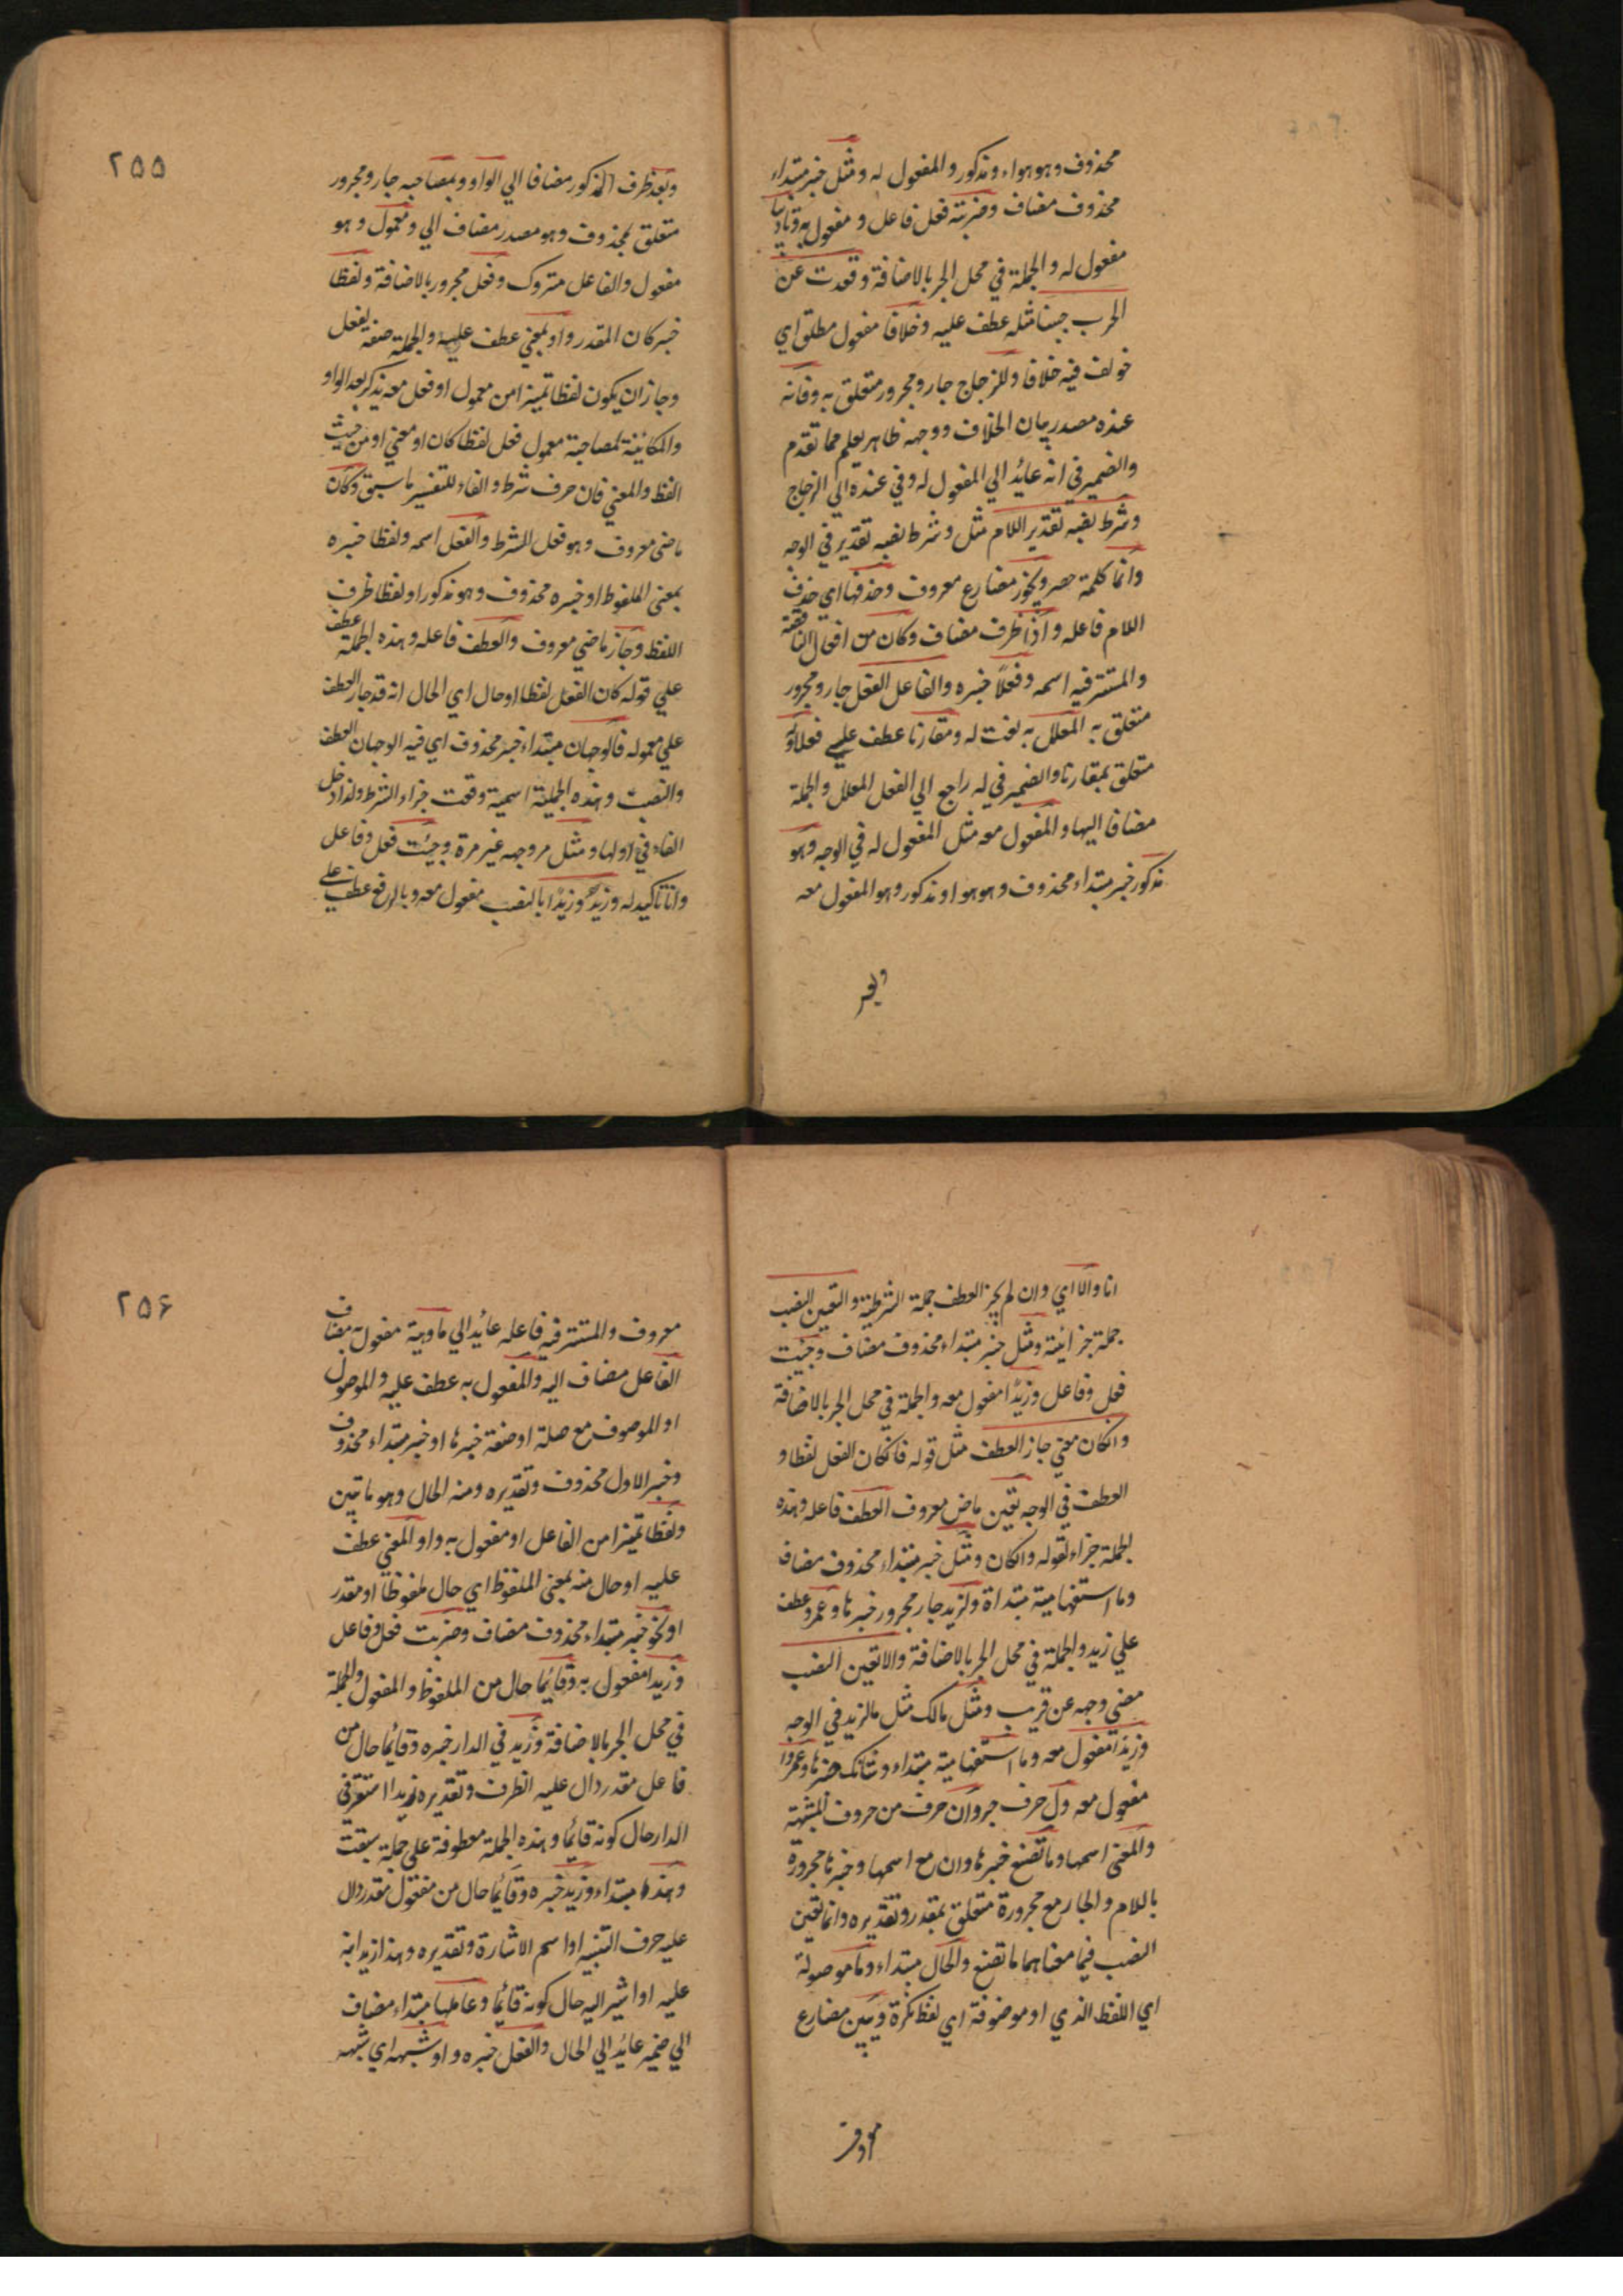 محذوف وهو هواء ومذكور والمفعول له ومثل خبر مبتداء
محذوف مضاف وضربته فعل فاعل ومفعول به وتاديبا
مفعول له والجملة في محل الجر بالاضافة وقعدت عن
الحرب جبنا مثله عطف عليه وخلافا مفعول مطلق اي
خولف فيه خلافا وللزجاج جار ومجرور متعلق به وفانه
عنده مصدر بيان الخلاف ووجهه ظاهر يعلم مما تقدم
والضمير في انه عائد الي المفعول له وفي عنده الي الزجاج
وشرط نصبه تقدير اللام مثل وشرط نصبه تقدير في الوجه
وانما كلمة حصر ويجوز مضارع معروف وحذفها اي حذف
اللام فاعله واذا ظرف مضاف وكان من افعال الناقصة
والمستتر فيه اسمه وفعلاً خبره والفاعل الفعل جار ومجرور
متعلق به المعلل به نعت له ومقارنا عطف علي فعلا وله
متعلق بمقارنا والضمير في له راجع الي الفعل المعلل والجملة
مضافا اليها والمفعول معه مثل المفعول له في الوجه وهو
مذكور خبر مبتداء محذوف وهو هوا ومذكور وهو المفعول معه
وبعد
٢٥٥
وبعد ظرف المذكور مضافا الي الواو وبمصاحبه جار ومجرور
متعلق بمحذوف وهو مصدر مضاف الي ومعمول وهو
مفعول والفاعل متروك وفعل مجرور بالاضافة ولفظا
خبر كان المقدر واو بمعني عطف عليه والجملة صفة لفعل
وجاز ان يكون لفظا تميزا من معمول او فعل معه يذكر بعد الواو
والمكائنة لمصاحبة معمول فعل لفظا كان او معني او من حيث
الفظ والمعني فان حرف شرط والفاء للتفسير ما سبق وكان
ماضي معروف وهو فعل الشرط والفعل اسمه ولفظا خبره
بمعني الملفوظ او خبره محذوف وهو مذكورا ولفظا ظرف
اللفظ وجاز ماضي معروف والعطف فاعله وهذه الجملة عطف
علي قوله كان الفعل لفظا او حال اي الحال انه قد جاز العطف
علي معموله فالوجهان مبتداء خبر محذوف اي فيه الوجهان العطف
والنصب وهذه الجملة اسمية وقعت جزاء الشرط ولذا دخل
الفاء في اولها ومثل مر وجهه غير مرة وجئت فعل وفاعل
وانا تاكيد له وزيدٌ وزيدًا بالنصب مفعول معه وبالرفع عطف علي
انا والا اي وان لم يجز العطف جملة الشرطية والتعين النصب
جملة جزائية ومثل خبر مبتداء محذوف مضاف وجئت
فعل وفاعل وزيدًا مفعول معه والجملة في محل الجر بالاضافة
وانكان معني جاز العطف مثل قوله فانكان الفعل لفظا و
العطف في الوجه تعين ماض معروف العطف فاعله وهذه
الجملة جزاء لقوله وانكان ومثل خبر مبتداء محذوف مضاف
وما استفهامية مبتداة ولزيد جار مجرور خبرها وعمرو عطف
علي زيد والجملة في محل الجر بالاضافة والا تعين النصب
مضي وجهه عن قريب ومثل مالك مثل مالزيد في الوجه
وزيدًا مفعول معه وما استفهامية مبتداء وشانك خبرها وعمروا
مفعول معه ول حرف جر وان حرف من حروف المشبهة
والمعني اسمها وما تصنع خبرها وان مع اسمها وخبرها مجرورة
باللام والجار مع مجرورة متعلق بمقدر وتقديره وانما تعين
النصب فيما معناهما ما تصنع والحال مبتداء وما موصولة
اي اللفظ الذي او موضوفة اي لفظ نكرة ويبين مضارع
معروف
٢٥۶
معروف والمستتر فيه فاعله عائد الي ما وهيئة مفعول به مضاف
الفاعل مضاف اليه والمفعول به عطف عليه والموصول
او الموصوف مع صلة او صفة خبرها او خبر مبتداء محذوف
وخبر الاول محذوف وتقديره ومنه الحال وهو ما تبين
ولفظا تميزا من الفاعل او مفعول به واو المعني عطف
عليه او حال منه بمعني الملفوظ اي حال ملفوظًا او مقدر
او نحو خبر مبتداء محذوف مضاف وضربت فعل وفاعل
وزيدا مفعول به وقائما حال من الملفوظ والمفعول والجملة
في محل الجر بالاضافة وزيد في الدار خبره وقائما حال من
فاعل مقدر دال عليه الظرف وتقديره زيدا استقر في
الدار حال كونه قائما وهذه الجملة معطوفة علي جملة سبقت
وهذا مبتداء وزيد خبره وقائما حال من مفعول مقدر دال
عليه حرف التنبيه او اسم الاشارة وتقديره وهذا زيد انبه
عليه او اشير اليه حال كونه قائما وعاملها مبتداء مضاف
الي ضمير عائد الي الحال والفعل خبره واو شبهه اي شبه